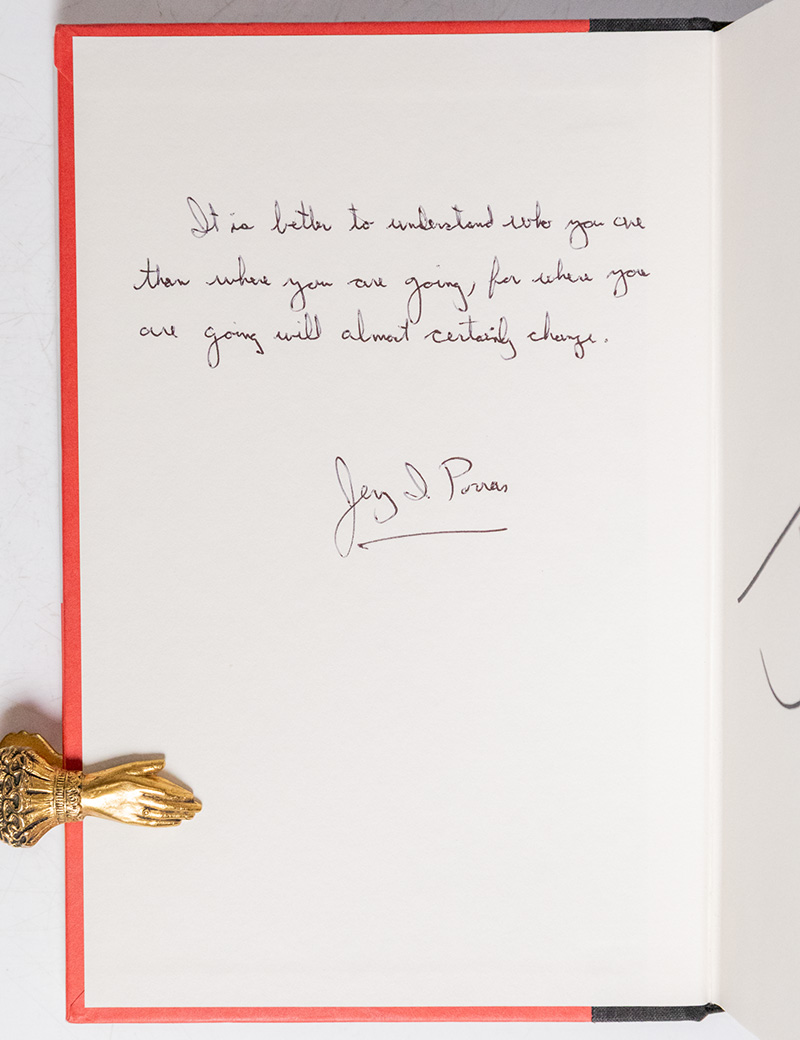 It is better to understand who you are
than where you are going, for where you
are going will almost certainly change.
Jerry I. Porras